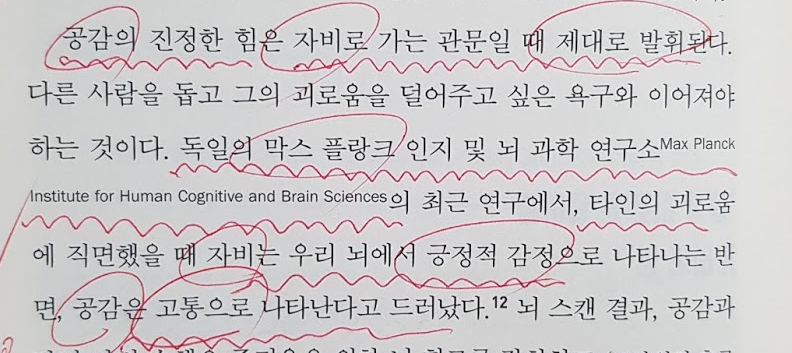 공감의 진정한 힘은 자비로 가는 관문일 때 제대로 발휘된다.
다른 사람을 돕고 그의 괴로움을 덜어주고 싶은 욕구와 이어져야
하는 것이다. 독일의 막스 플랑크 인지 및 뇌 과학 연구소Max Planck
Institute for Human Cognitive and Brain Sciences의 최근 연구에서, 타인의 괴로움
에 직면했을 때 자비는 우리 뇌에서 긍정적 감정으로 나타나는 반
면, 공감은 고통으로 나타난다고 드러났다.12 뇌 스캔 결과, 공감과